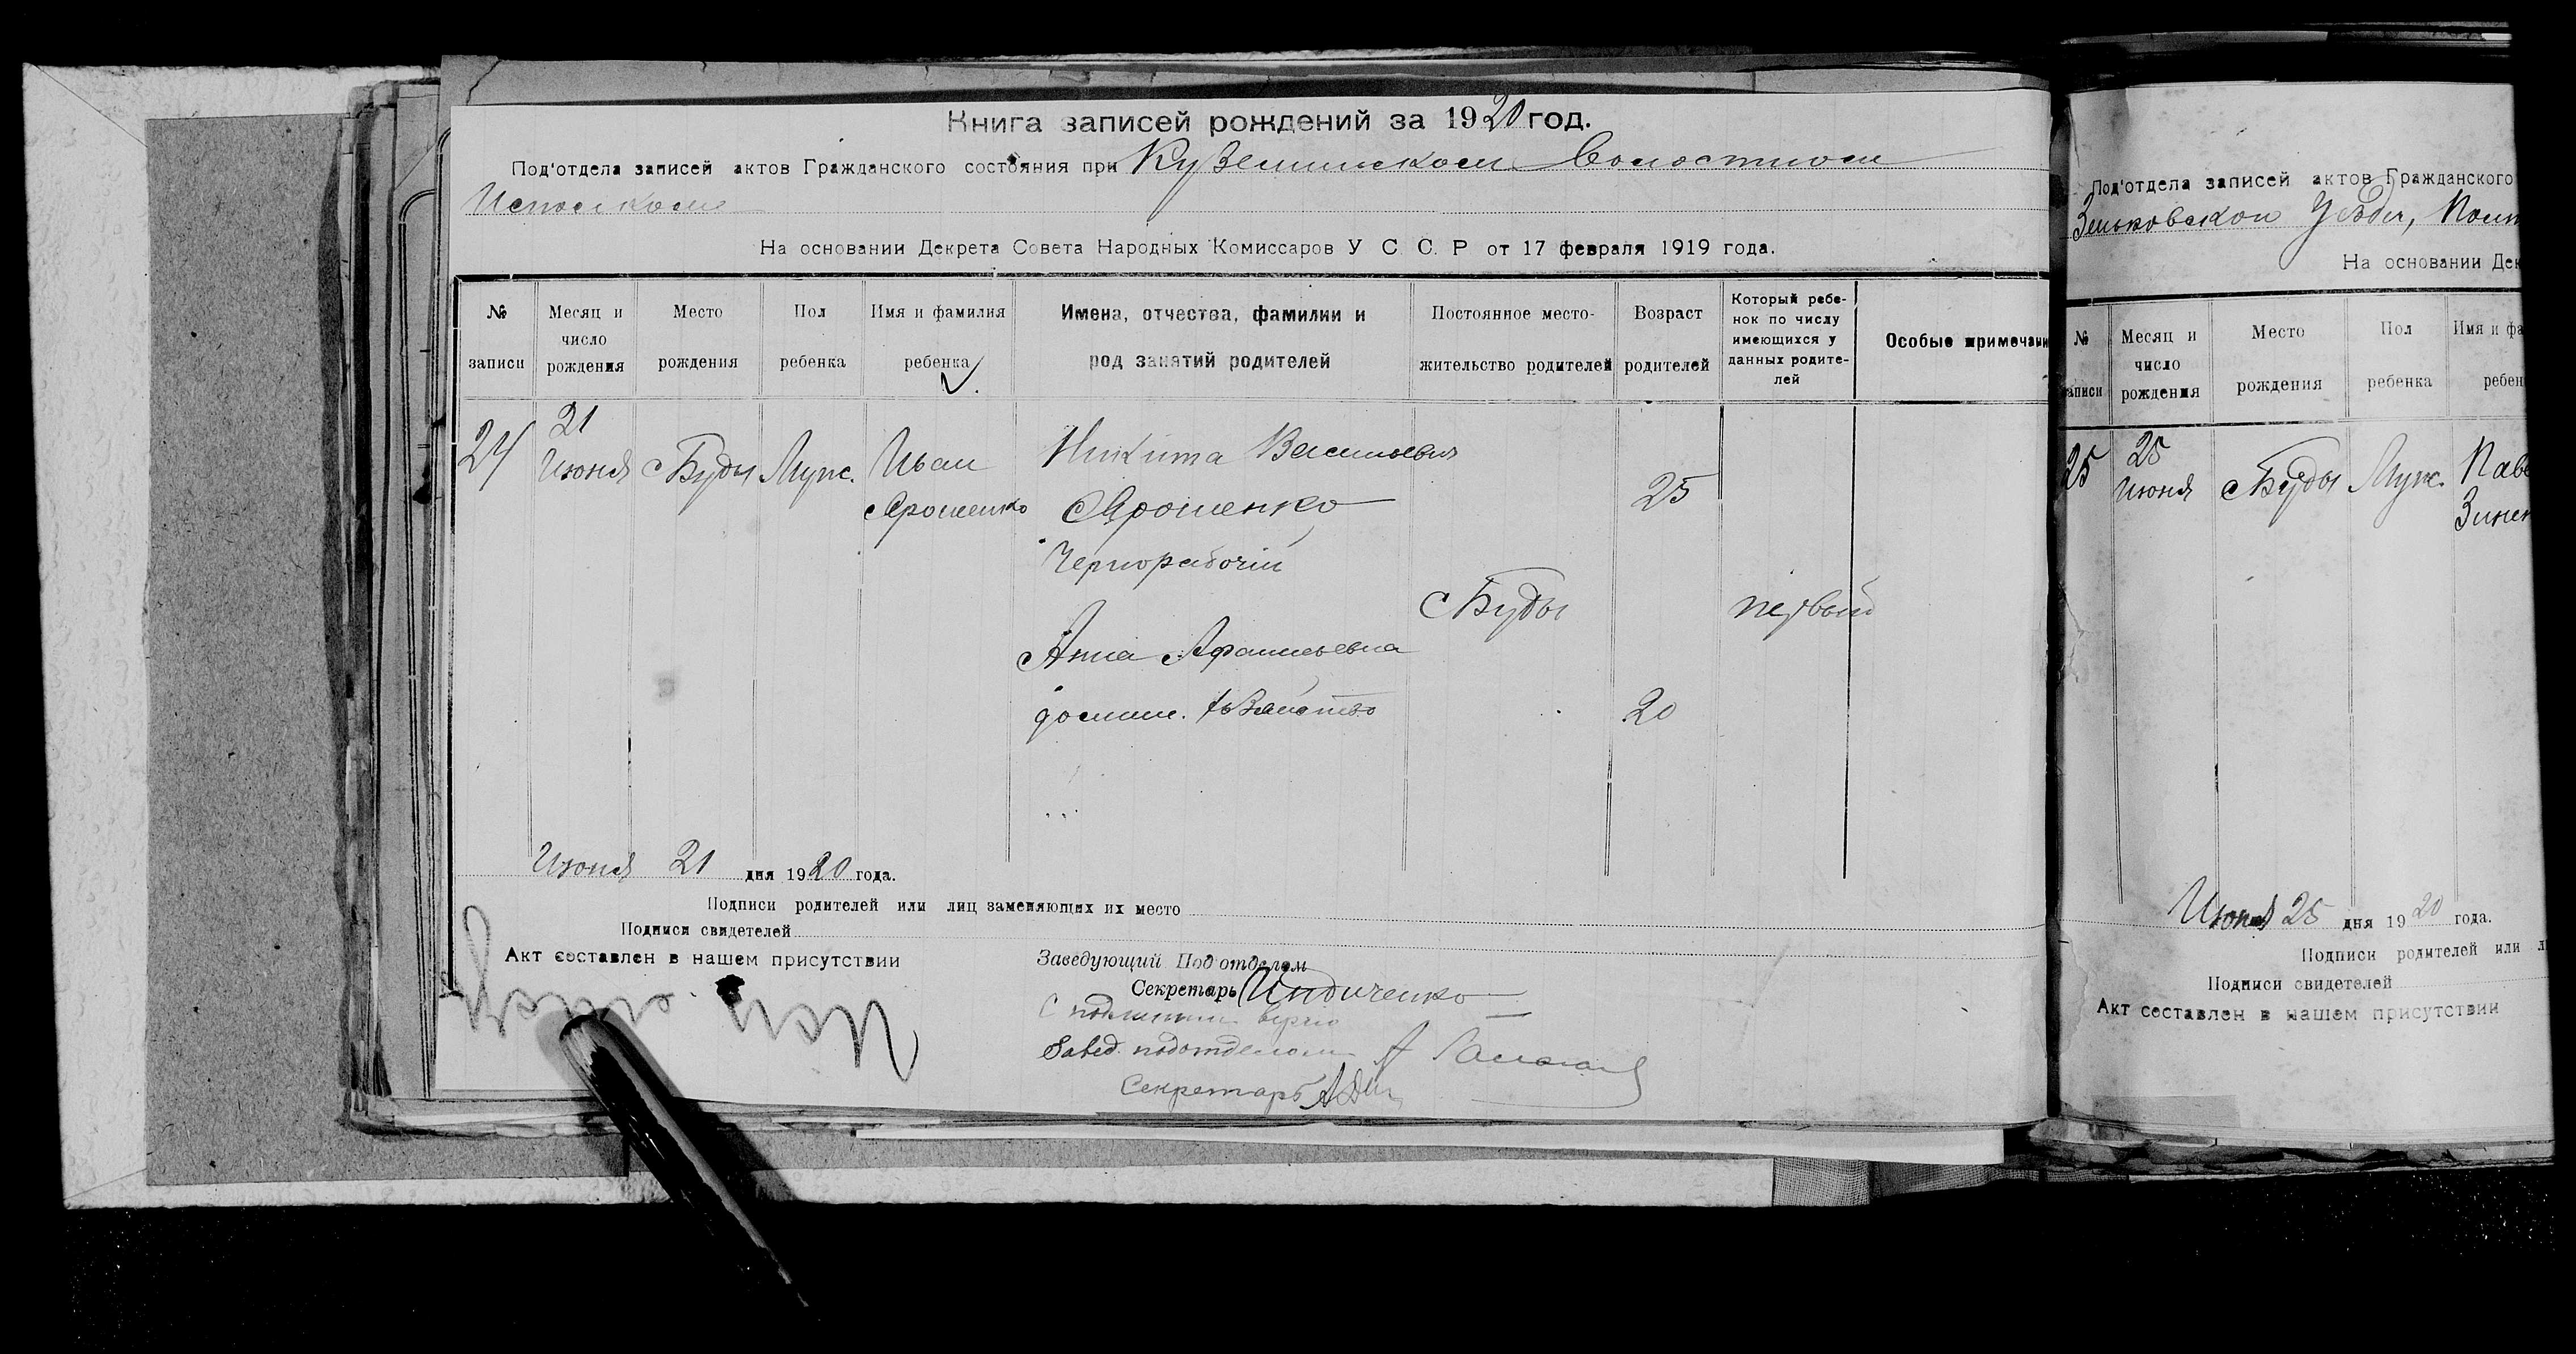 Книга записей рождений за 1920 год.
Под'отдела записей актов Гражданского состояния при Куземинском Волостном
Исполкоме
На основании Декрета Совета Народных Комиссаров У С. С. Р от 17 февраля 1919 года.
№ записи
Месяц и число рождения
Место рождения
Пол ребенка
Имя и фамилия ребенка
Имена, отчества, фамилии и род занятий родителей
Постоянное место-жительство родителей
Возраст родителей
Который ребе-нок по числу имеющихся у данных родите-лей
Особые примечани
24
21 Июня
с Буды
Муж.
Иван
Ярошенко
Никита Васильевич
Ярошенко
Чернорабочій
25
с Буды
первый
Анна Афанасьевна
домашн. хозяйство
20
Июня 21 дня 1920 года.
Подписи родителей или лиц заменяющих их место
Подписи свидетелей
Акт составлен в нашем присутствии
Заведующий Под отделом
Секретарь Индиченко
С подлинным верно
Завед. подотделом А
Секретарь
Под'отдела записей актов Гражданского
Зеньковского Уезда,
На основании Дек
№ аписи
Месяц и число рождения
Место рождения
Пол ребенка
Имя и фа
ребен
25
25 Июня
с Буды
Муж.
Паве
Зинен
Июня 25 дня 1920 года.
Подписи родителей или л
Подписи свидетелей
Акт составлен в нашем присутствии